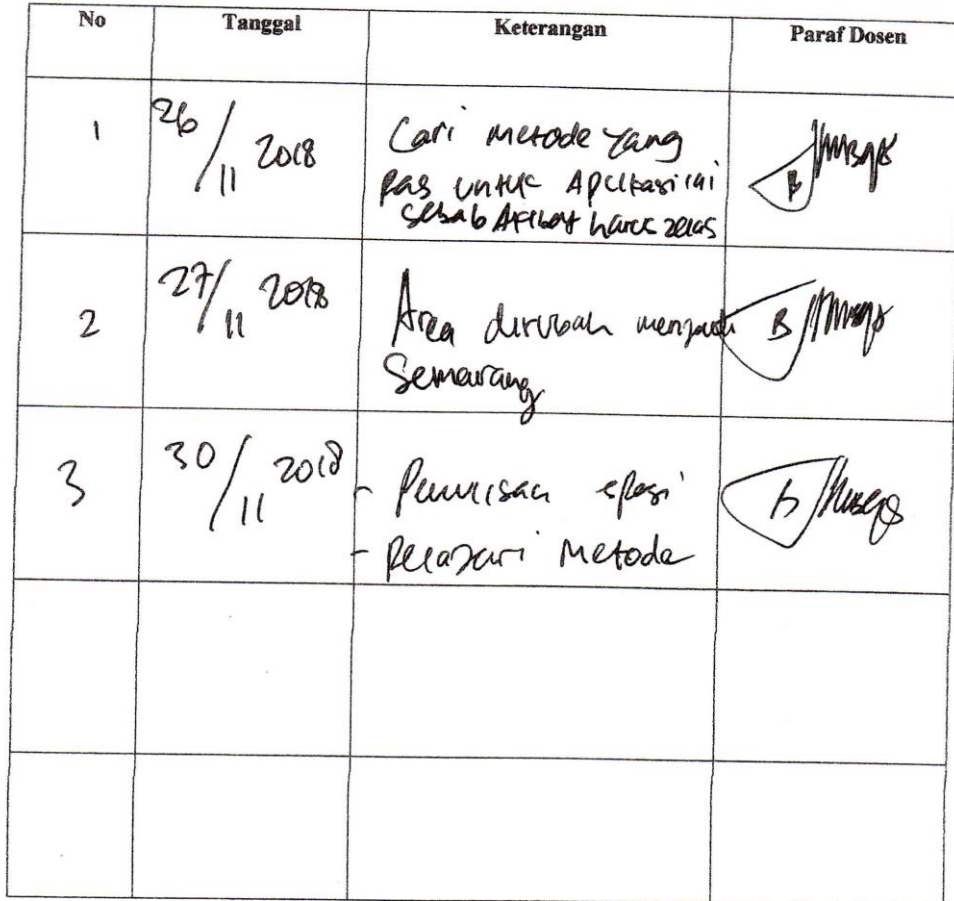 No Tanggal Keterangan Paraf Dosen
1 26/11 2018 Cari metode yang
pas untuk Aplikasi ini
sebab Atribut harus jelas
2 27/11 2018 Area dirubah menjadi
Semarang
3 30/11 2018 - Penulisan spasi
- Pelajari Metode